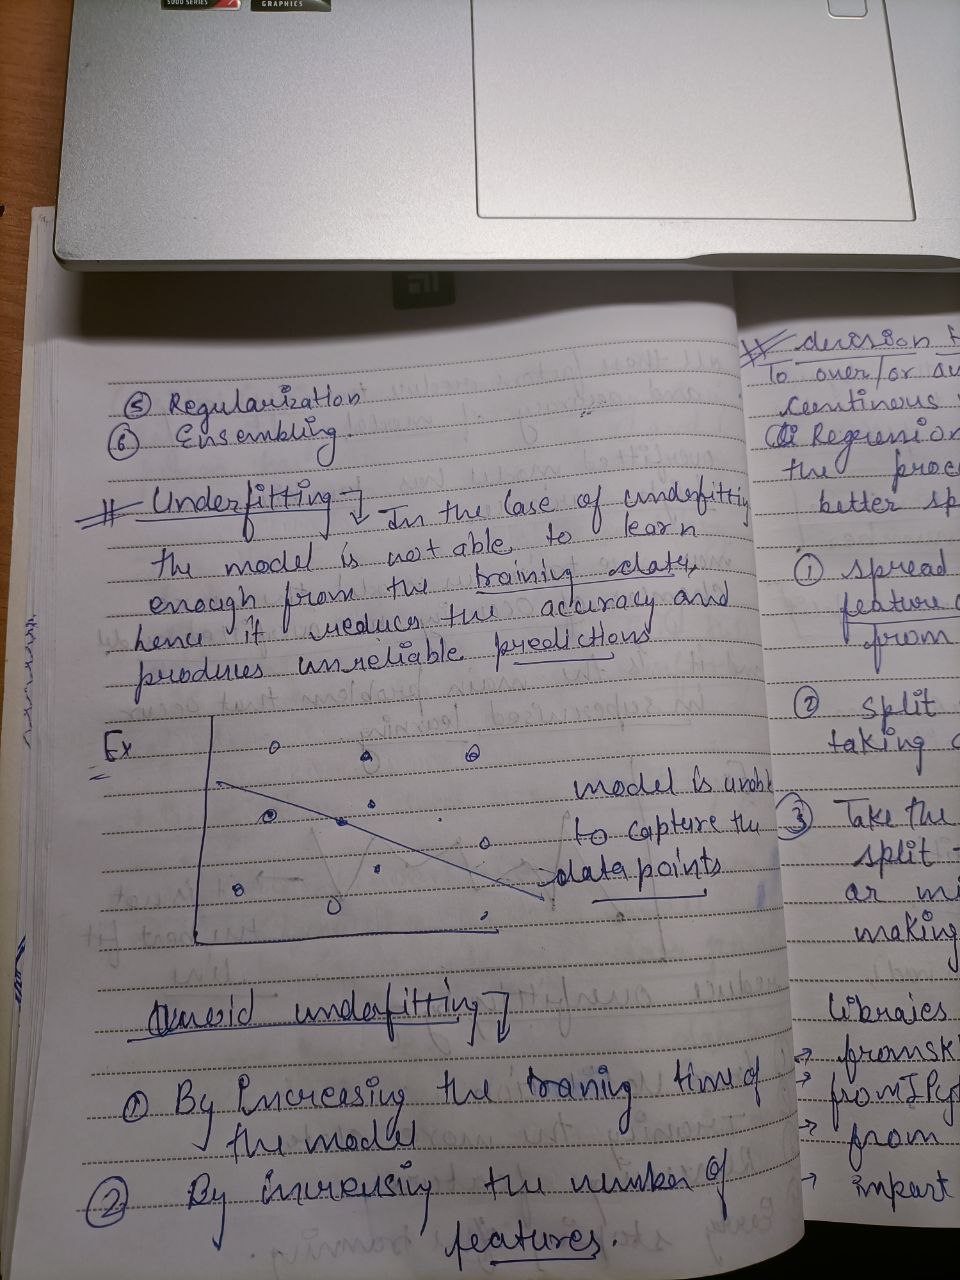 5000 SERIES
GRAPHICS
⑤ Regularization
⑥ Ensembling.
# Underfitting → In the Case of underfitting
the model is not able to learn
enough from the training data,
hence it reduces the accuracy and
produces unreliable predictions
Ex
model is unable
to capture the
data points
Avoid underfitting
① By Increasing the traning time of
the model
② By increasing the number of
features.
# decision
To over/or
Continous
Regression
the proc
better sp
① spread
feature
from
② split
taking
③ Take the
split
or mi
making
libraies
→ from sk
→ from IPy
→ from
→ import